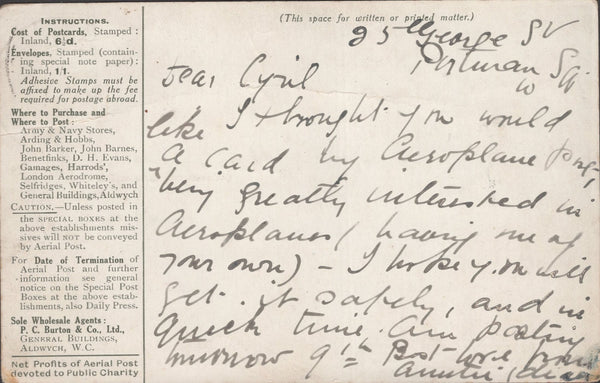 INSTRUCTIONS.
Cost of Postcards, Stamped :
Inland, 6½d.
Envelopes, Stamped (contain-
ing special note paper):
Inland, 1/1.
Adhesive Stamps must be
affixed to make up the fee
required for postage abroad.
Where to Purchase and
Where to Post :
Army & Navy Stores,
Arding & Hobbs,
John Barker, John Barnes,
Benetfinks, D. H. Evans,
Gamages, Harrods',
London Aerodrome,
Selfridges, Whiteley's, and
General Buildings, Aldwych
CAUTION.—Unless posted in
the SPECIAL BOXES at the
above establishments mis-
sives will NOT be conveyed
by Aerial Post.
For Date of Termination of
Aerial Post and further
information see general
notice on the Special Post
Boxes at the above estab-
lishments, also Daily Press.
Sole Wholesale Agents :
P. C. Burton & Co., Ltd.,
GENERAL BUILDINGS,
ALDWYCH, W.C.
Net Profits of Aerial Post
devoted to Public Charity
(This space for written or printed matter.)
George St
Portman Sq
W
Dear Cyril
I thought you would
like a card by Aeroplane Post,
being greatly interested in
Aeroplanes (having one of
your own) – I hope you will
get it safely, and in
quick time. Am posting
tomorrow 9th Best love from
Auntie